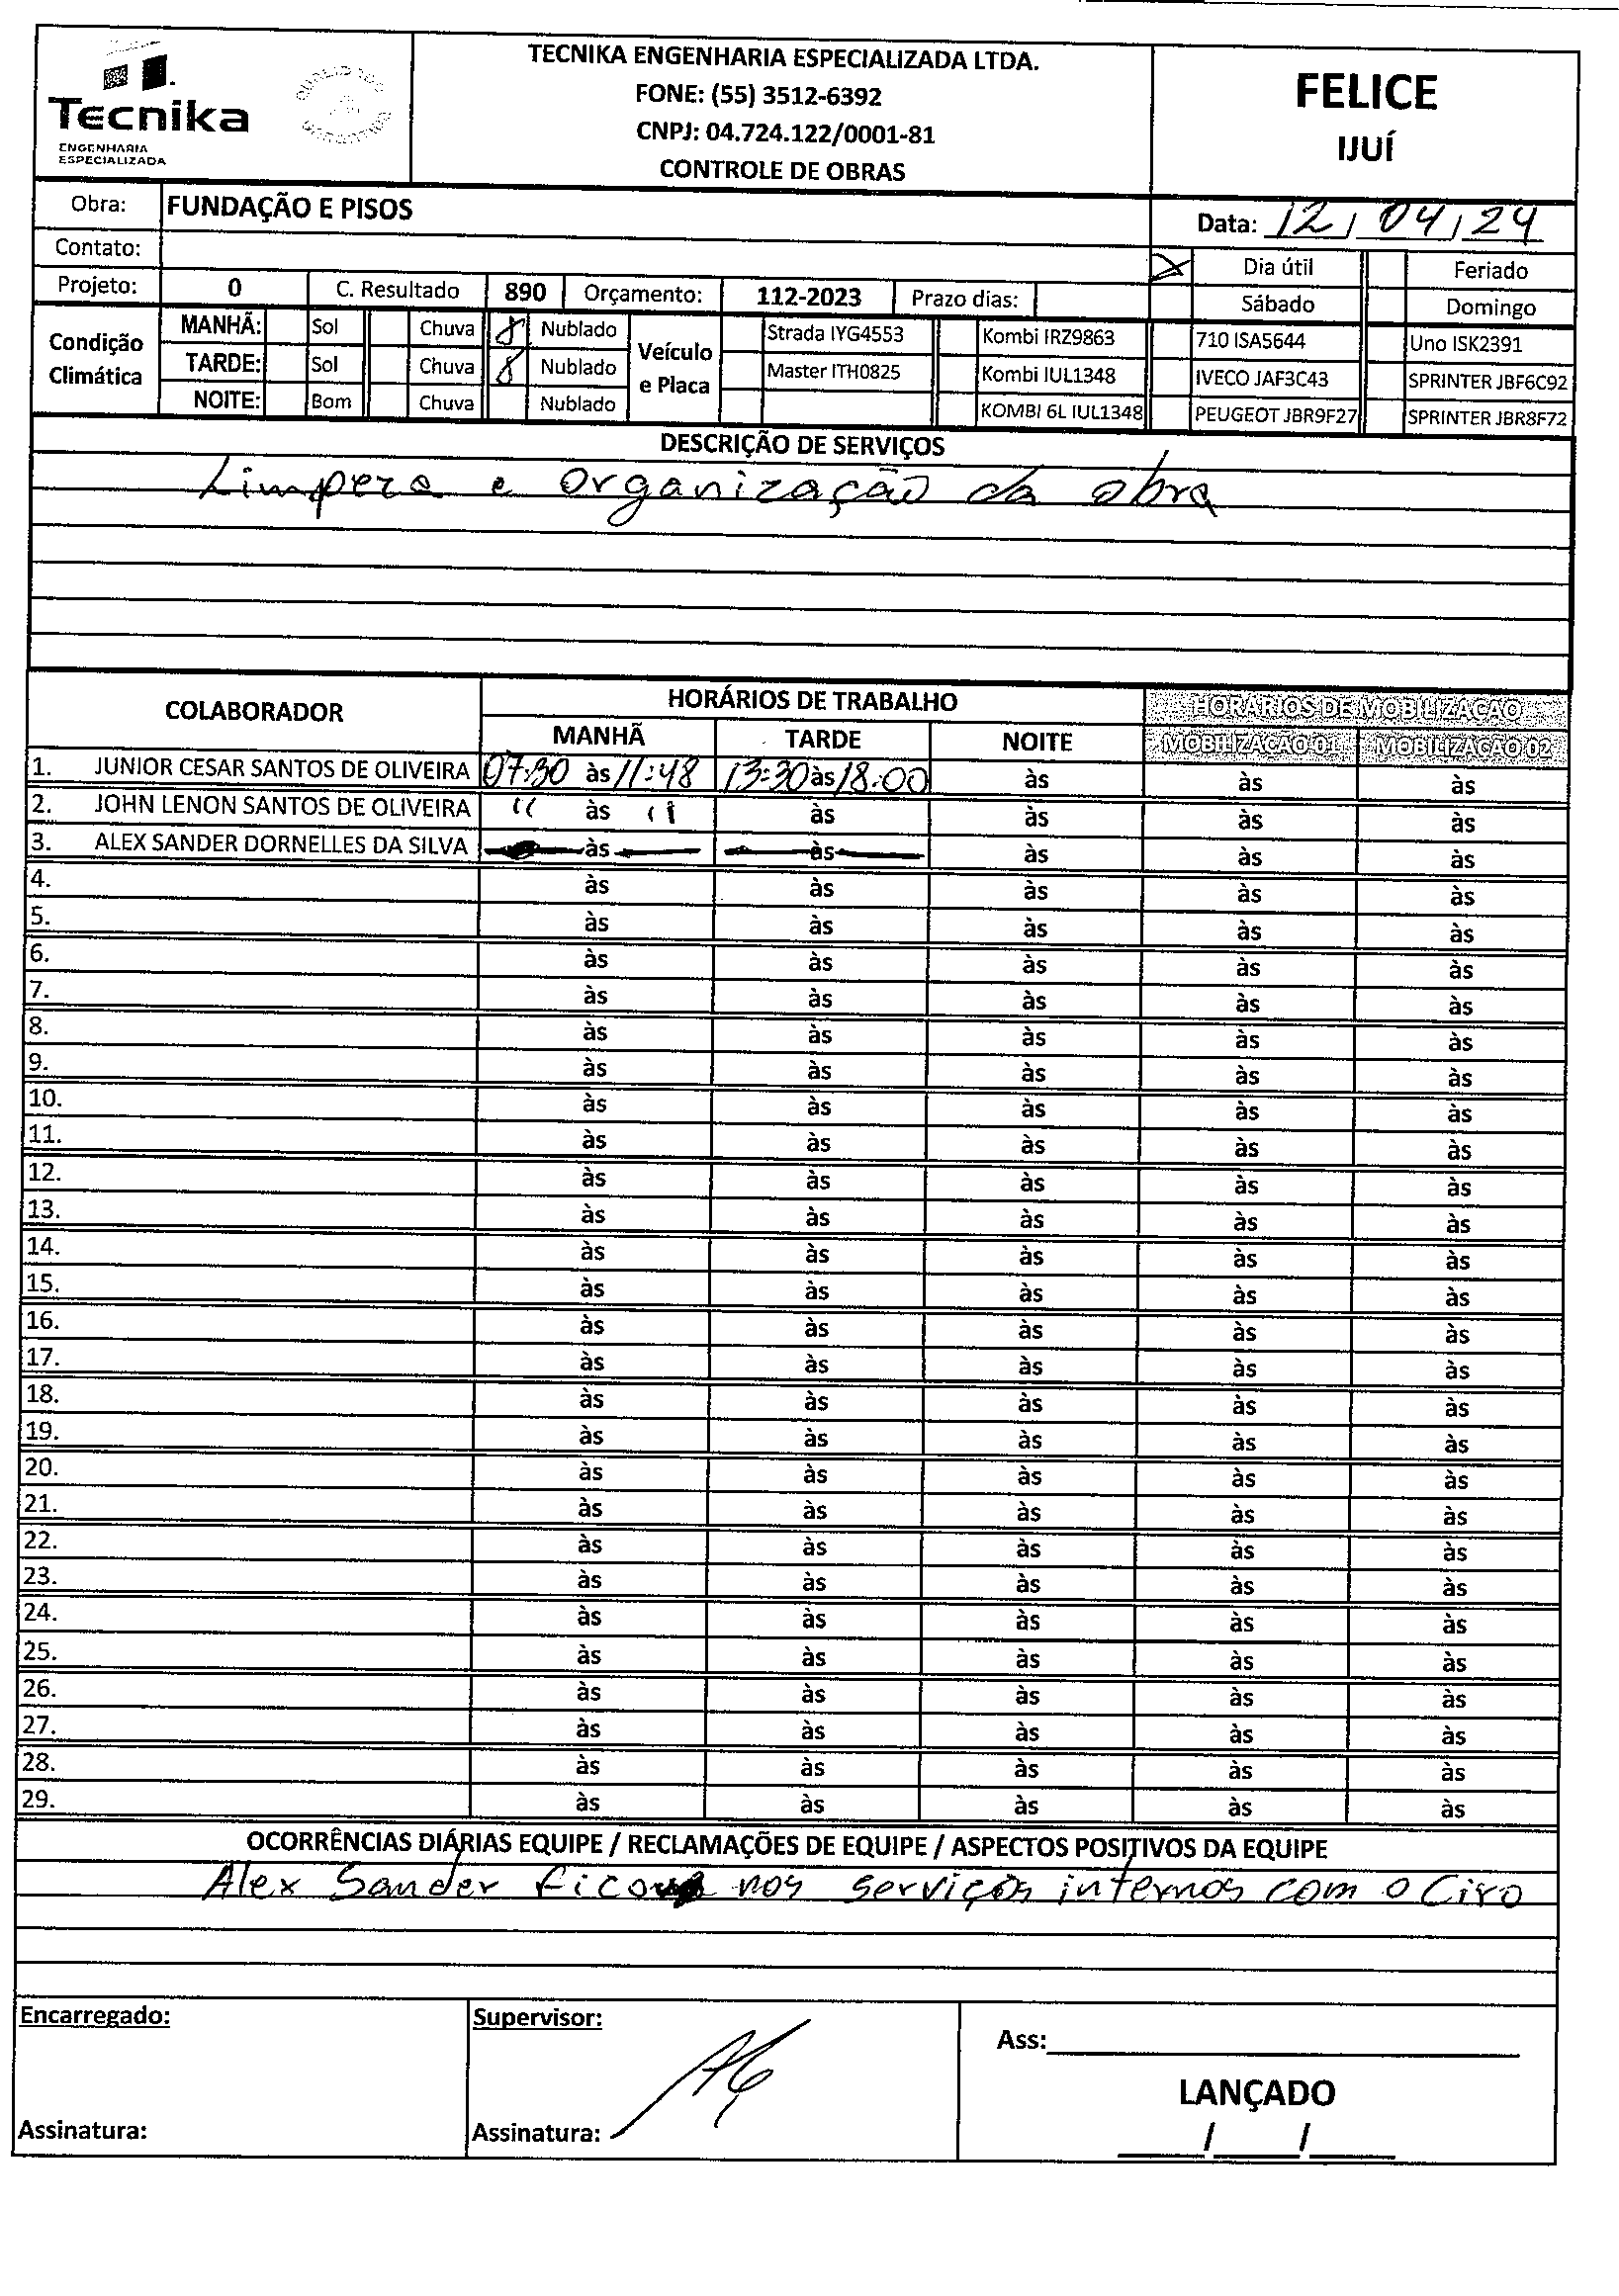 Tecnika
ENGENHARIA
ESPECIALIZADA
TECNIKA ENGENHARIA ESPECIALIZADA LTDA.
FONE: (55) 3512-6392
CNPJ: 04.724.122/0001-81
CONTROLE DE OBRAS
FELICE
IJUÍ
Obra: FUNDAÇÃO E PISOS
Data: 12/04/24
Contato:
Dia útil Feriado
Projeto: 0 C. Resultado 890 Orçamento: 112-2023 Prazo dias: Sábado Domingo
Condição Climática
MANHÃ: Sol Chuva Nublado
TARDE: Sol Chuva Nublado
NOITE: Bom Chuva Nublado
Veículo e Placa
Strada IYG4553 Kombi IRZ9863 710 ISA5644 Uno ISK2391
Master ITH0825 Kombi IUL1348 IVECO JAF3C43 SPRINTER JBF6C92
KOMBI 6L IUL1348 PEUGEOT JBR9F27 SPRINTER JBR8F72
DESCRIÇÃO DE SERVIÇOS
Limpeza e organização da obra
COLABORADOR HORÁRIOS DE TRABALHO HORÁRIOS DE MOBILIZAÇÃO
MANHÃ TARDE NOITE MOBILIZAÇÃO 01 MOBILIZAÇÃO 02
1. JUNIOR CESAR SANTOS DE OLIVEIRA 07:30 às 11:48 13:30 às 18:00 às às às
2. JOHN LENON SANTOS DE OLIVEIRA " às " às às às às
3. ALEX SANDER DORNELLES DA SILVA às às às às às
4. às às às às às
5. às às às às às
6. às às às às às
7. às às às às às
8. às às às às às
9. às às às às às
10. às às às às às
11. às às às às às
12. às às às às às
13. às às às às às
14. às às às às às
15. às às às às às
16. às às às às às
17. às às às às às
18. às às às às às
19. às às às às às
20. às às às às às
21. às às às às às
22. às às às às às
23. às às às às às
24. às às às às às
25. às às às às às
26. às às às às às
27. às às às às às
28. às às às às às
29. às às às às às
OCORRÊNCIAS DIÁRIAS EQUIPE / RECLAMAÇÕES DE EQUIPE / ASPECTOS POSITIVOS DA EQUIPE
Alex Sander ficou nos serviços internos com o Ciro
Encarregado: Supervisor:
Ass:
LANÇADO
Assinatura: Assinatura:
/ /